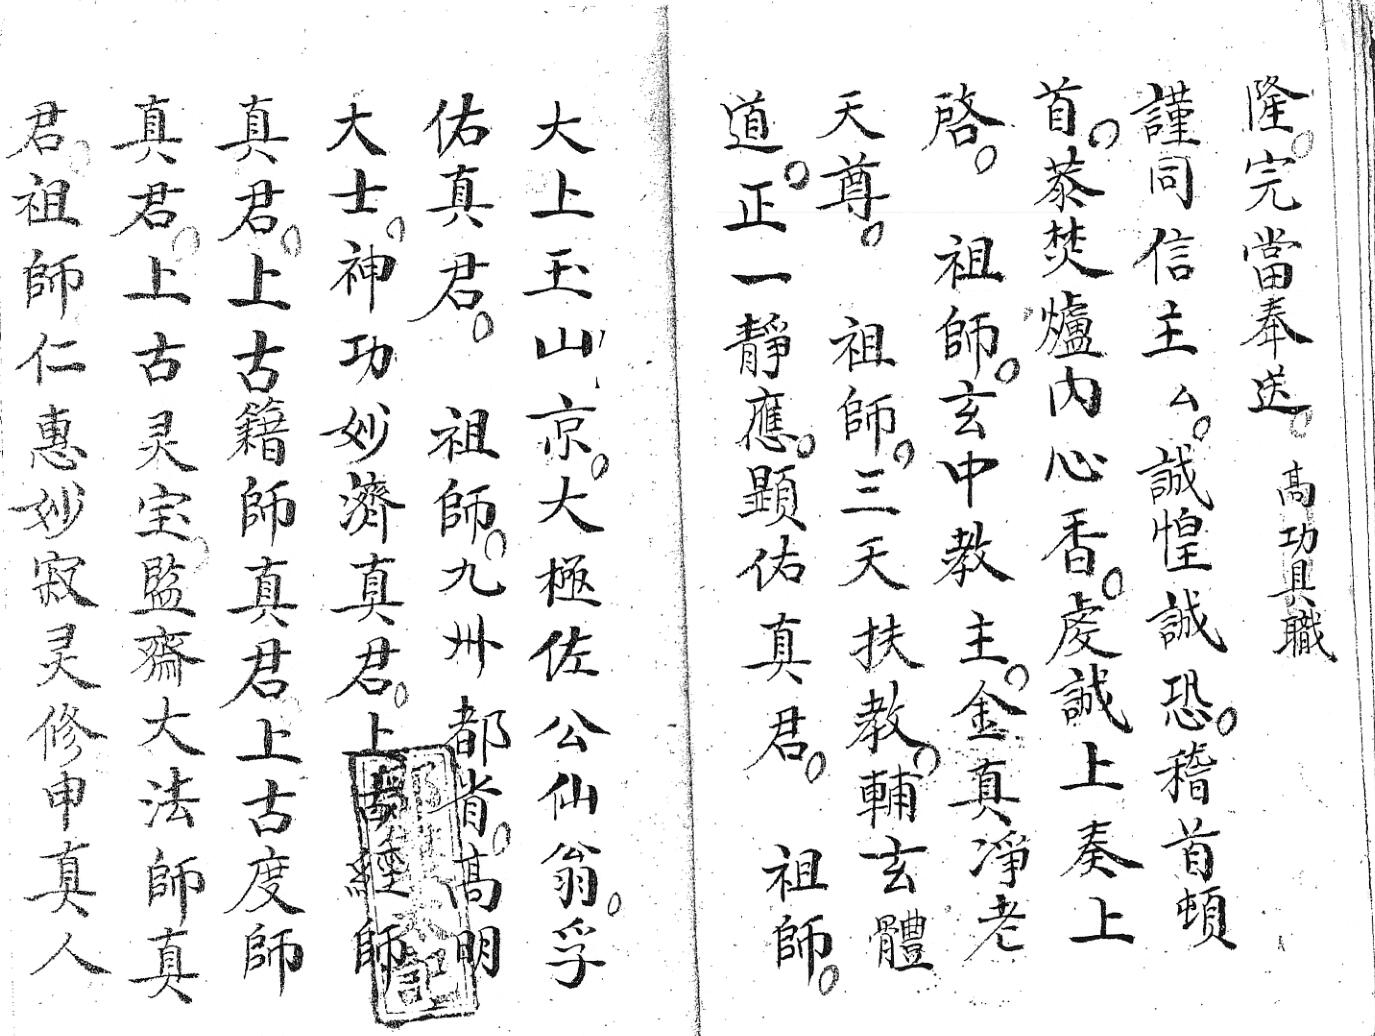 隆。完當奉送。 高功具職
謹同信主厶。誠惶誠恐。稽首頓
首。恭焚爐内心香。虔誠上奏上
啓。 祖師。玄中教主。金真淨老
天尊。 祖師。三天扶教。輔玄體
道。正一靜應。顕佑真君。 祖師。
大上玉山京。大極佐公仙翁。孚
佑真君。 祖師。九卅都省。高明
大士。神功妙濟真君。上古經師
真君。上古籍師真君上古度師
真君。上古灵宝監齋大法師真
君。祖師仁惠妙寂灵修申真人